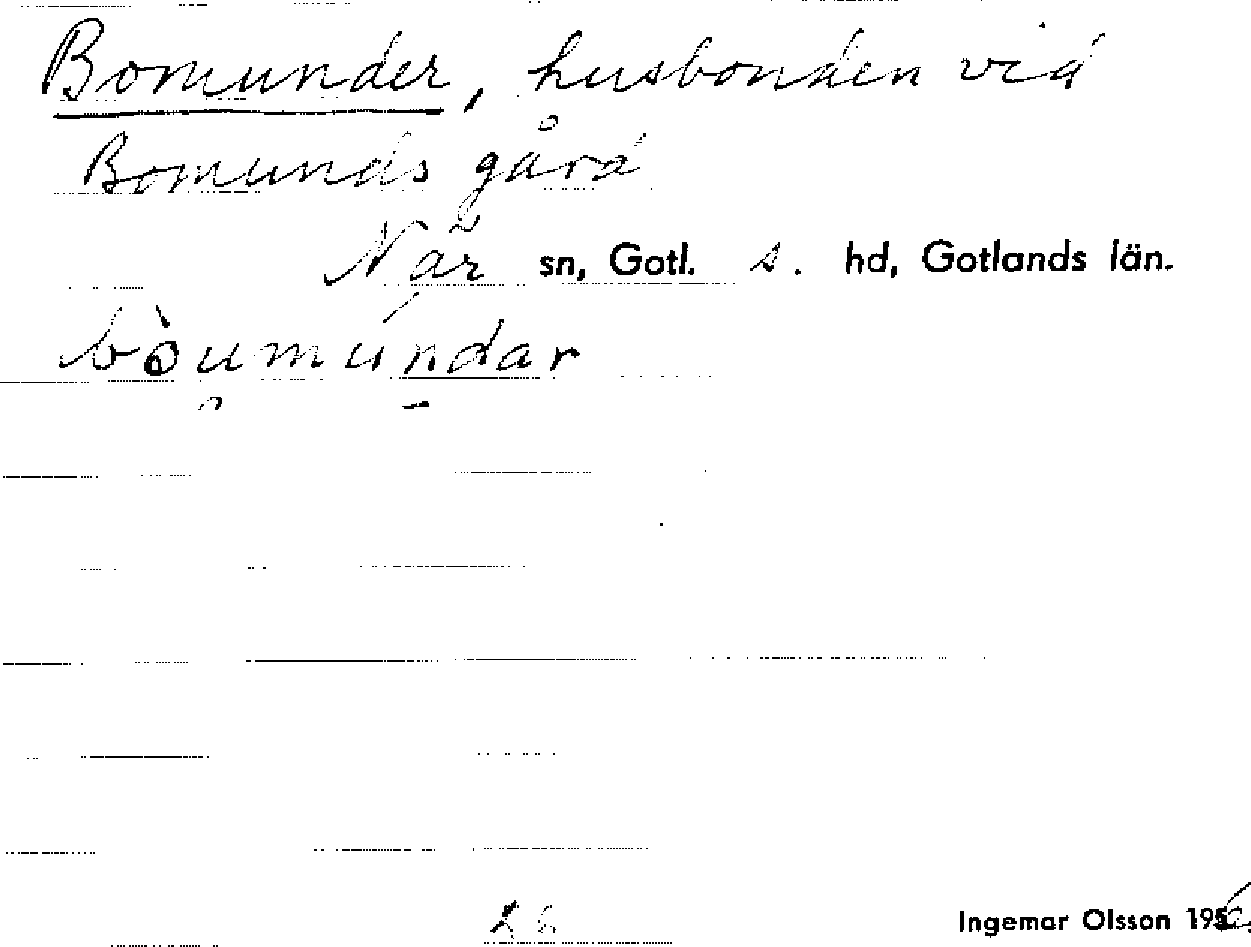 Bomunder, husbonden vid
Bomunds gård
När sn, Gotl. s. hd, Gotlands län.
bòumúndar
Ingemar Olsson